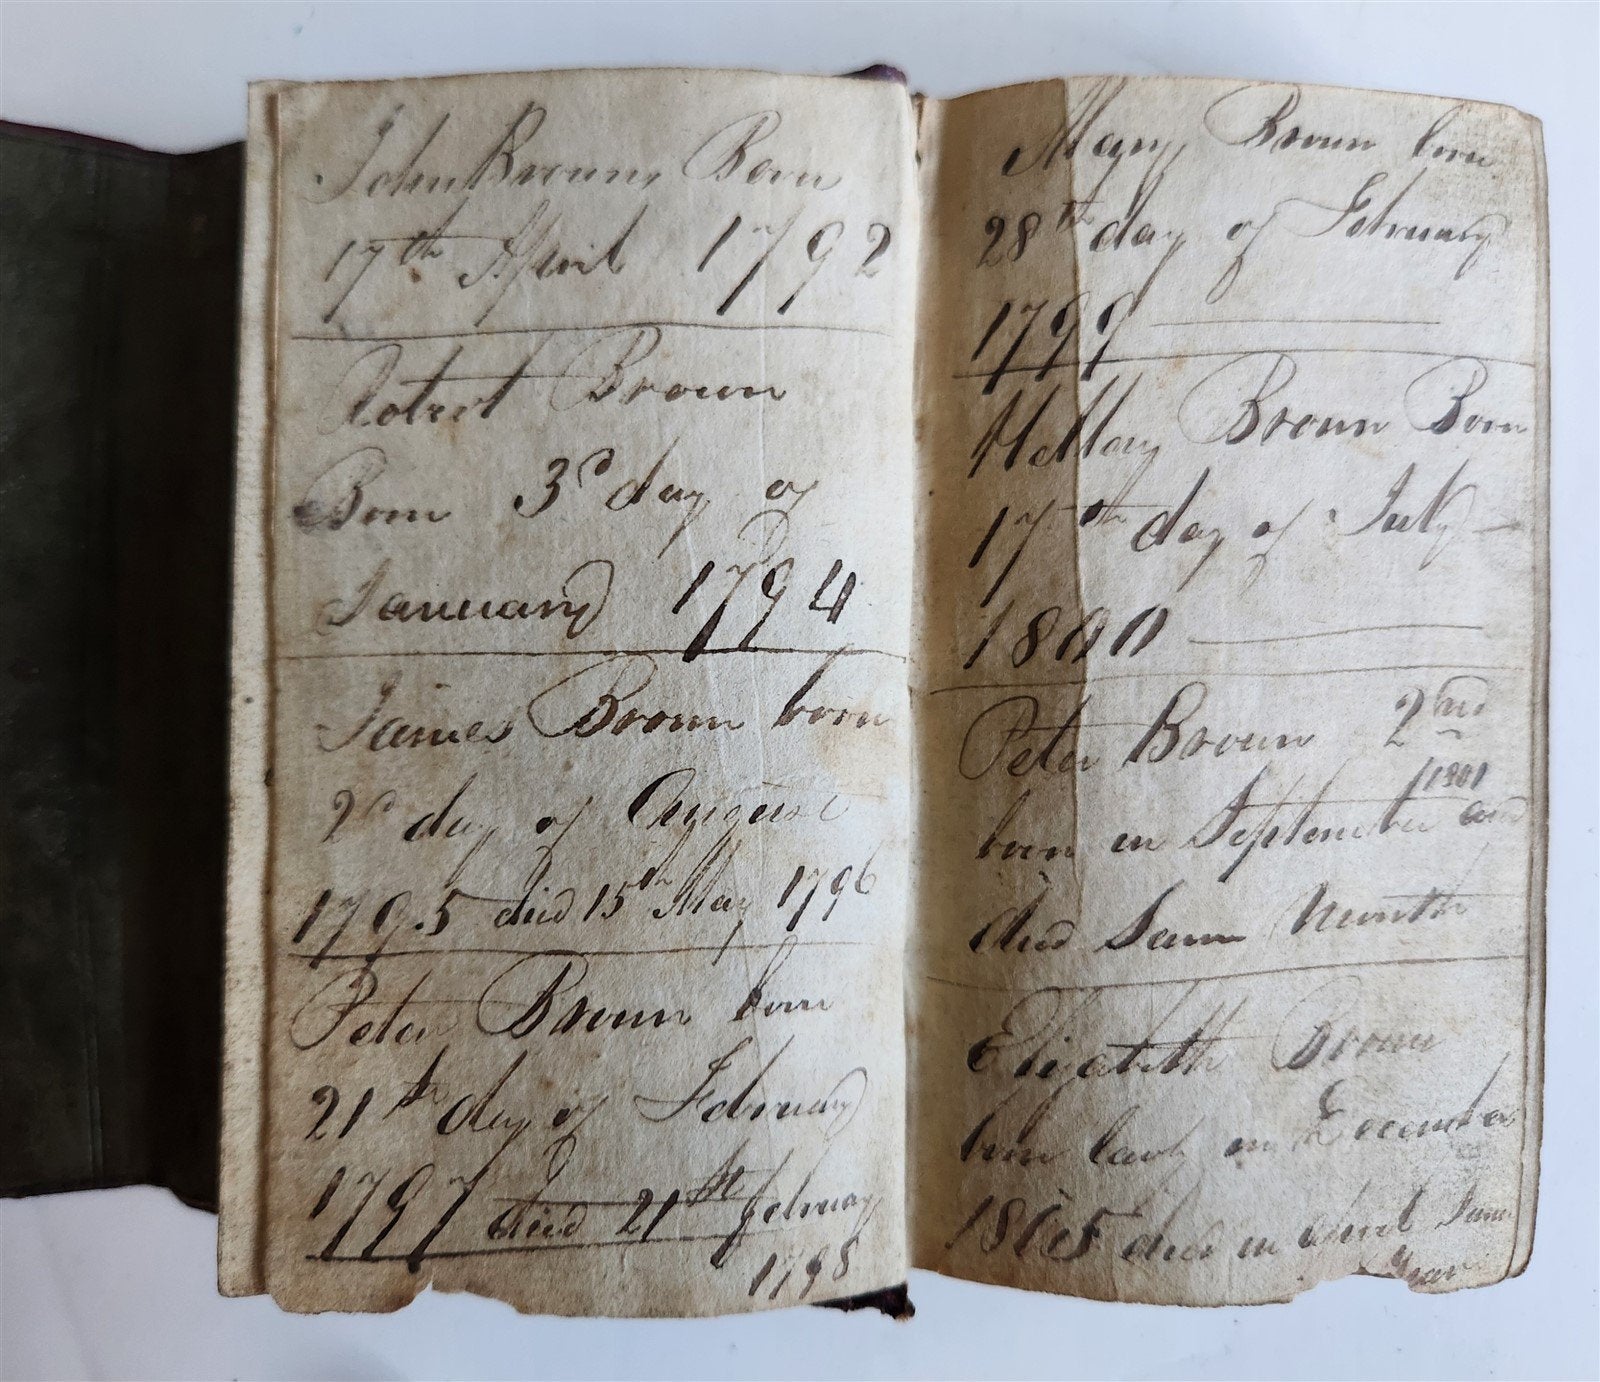 John Brown, Born
17th April 1792
Robert Brown
Born 3d day of
January 1794
James Brown born
2d day of August
1795 died 15th May 1796
Peter Brown born
21st day of February
1797 died 21st February
1798
Mary Brown born
28th day of February
1799
Brown Born
17th day of July
1800
Peter Brown 2nd
1801
born in September and
died Same Month
Elizabeth Brown
born in December
1805 died in Same
Year